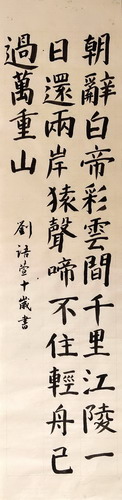 朝辭白帝彩雲間千里江陵一
日還兩岸猿聲啼不住輕舟已
過萬重山
劉語萱十歲書